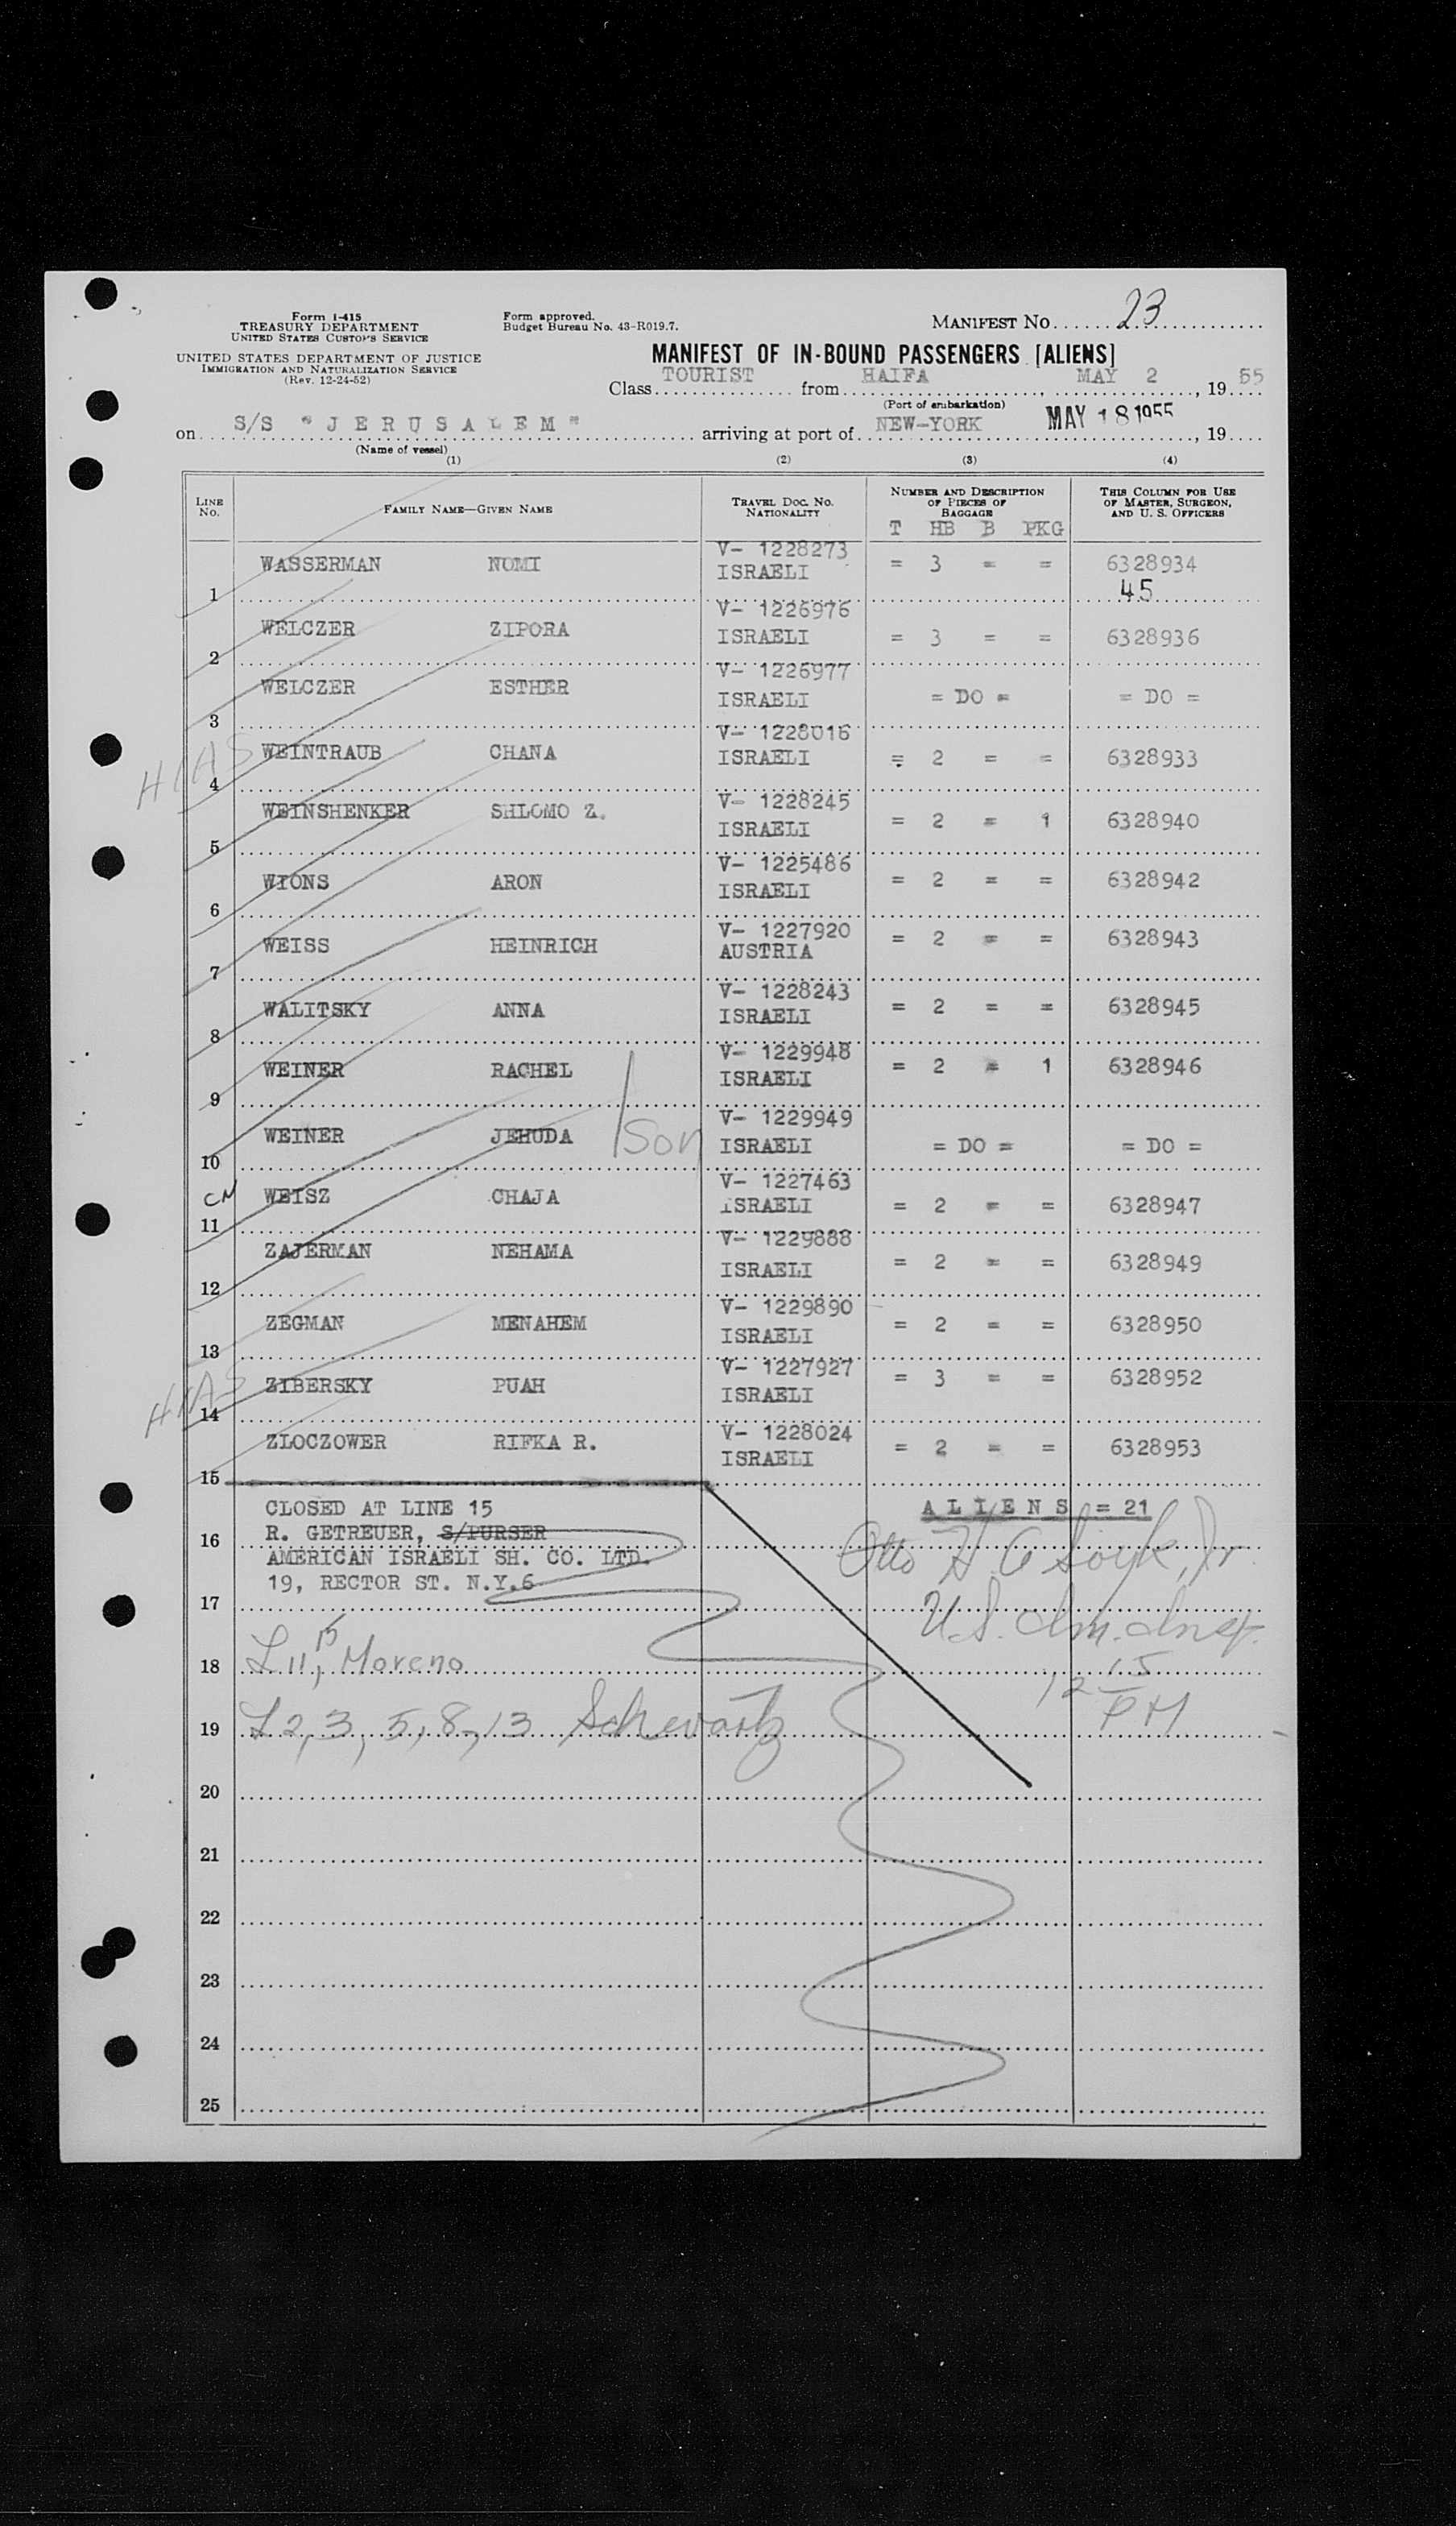 Form I-415
TREASURY DEPARTMENT
UNITED STATES CUSTOMS SERVICE
UNITED STATES DEPARTMENT OF JUSTICE
IMMIGRATION AND NATURALIZATION SERVICE
(Rev. 12-24-52)
Form approved.
Budget Bureau No. 43-R019.7.
MANIFEST NO. 23
MANIFEST OF IN-BOUND PASSENGERS [ALIENS]
Class TOURIST from HAIFA, MAY 2, 19 55
(Port of embarkation)
on S/S "JERUSALEM" arriving at port of NEW-YORK MAY 18 1955, 19
(Name of vessel)
(1) (2) (3) (4)
LINE NO. FAMILY NAME—GIVEN NAME TRAVEL DOC. NO. NATIONALITY NUMBER AND DESCRIPTION OF PIECES OF BAGGAGE THIS COLUMN FOR USE OF MASTER, SURGEON, AND U. S. OFFICERS
T HB B PKG
1 WASSERMAN NOMI V- 1228273 ISRAELI = 3 = = 6328934
45
2 WELCZER ZIPORA V- 1226976 ISRAELI = 3 = = 6328936
3 WELCZER ESTHER V- 1226977 ISRAELI = DO = = DO =
HIAS 4 WEINTRAUB CHANA V- 1228016 ISRAELI = 2 = = 6328933
5 WEINSHENKER SHLOMO Z. V- 1228245 ISRAELI = 2 = 1 6328940
6 WIONS ARON V- 1225486 ISRAELI = 2 = = 6328942
7 WEISS HEINRICH V- 1227920 AUSTRIA = 2 = = 6328943
8 WALITSKY ANNA V- 1228243 ISRAELI = 2 = = 6328945
9 WEINER RACHEL V- 1229948 ISRAELI = 2 = 1 6328946
10 WEINER JEHUDA Son V- 1229949 ISRAELI = DO = = DO =
CN 11 WEISZ CHAJA V- 1227463 ISRAELI = 2 = = 6328947
12 ZAJERMAN NEHAMA V- 1229888 ISRAELI = 2 = = 6328949
13 ZEGMAN MENAHEM V- 1229890 ISRAELI = 2 = = 6328950
HIAS 14 ZIBERSKY PUAH V- 1227927 ISRAELI = 3 = = 6328952
15 ZLOCZOWER RIFKA R. V- 1228024 ISRAELI = 2 = = 6328953
CLOSED AT LINE 15 ALIENS = 21
16 R. GETREUER, S/PURSER
AMERICAN ISRAELI SH. CO. LTD.
19, RECTOR ST. N.Y.6
17 U.S. Im. Insp.
18 L 11, 15 Moreno 12 15 PM
19 L 2, 3, 5, 8, 13 Schwartz
20
21
22
23
24
25